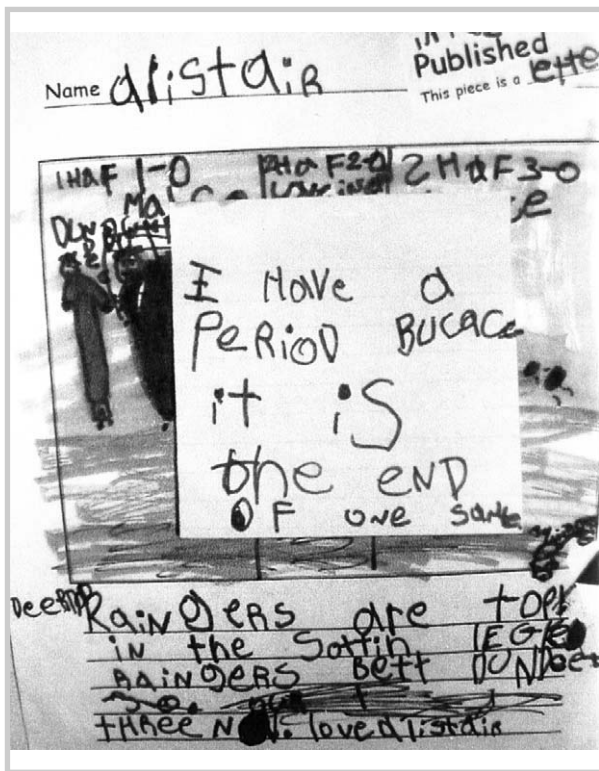 Name alistair
Published
This piece is a
1HaF 1-0
2HaF2-0
2HaF3-0
I Have a
PeRioD BUCaCe
it is
the eND
OF one
RaiNgeRS are TOP
in the Sottin LEGIE
RaiNgeRS Bett DUNDee
THRee N
love alistair